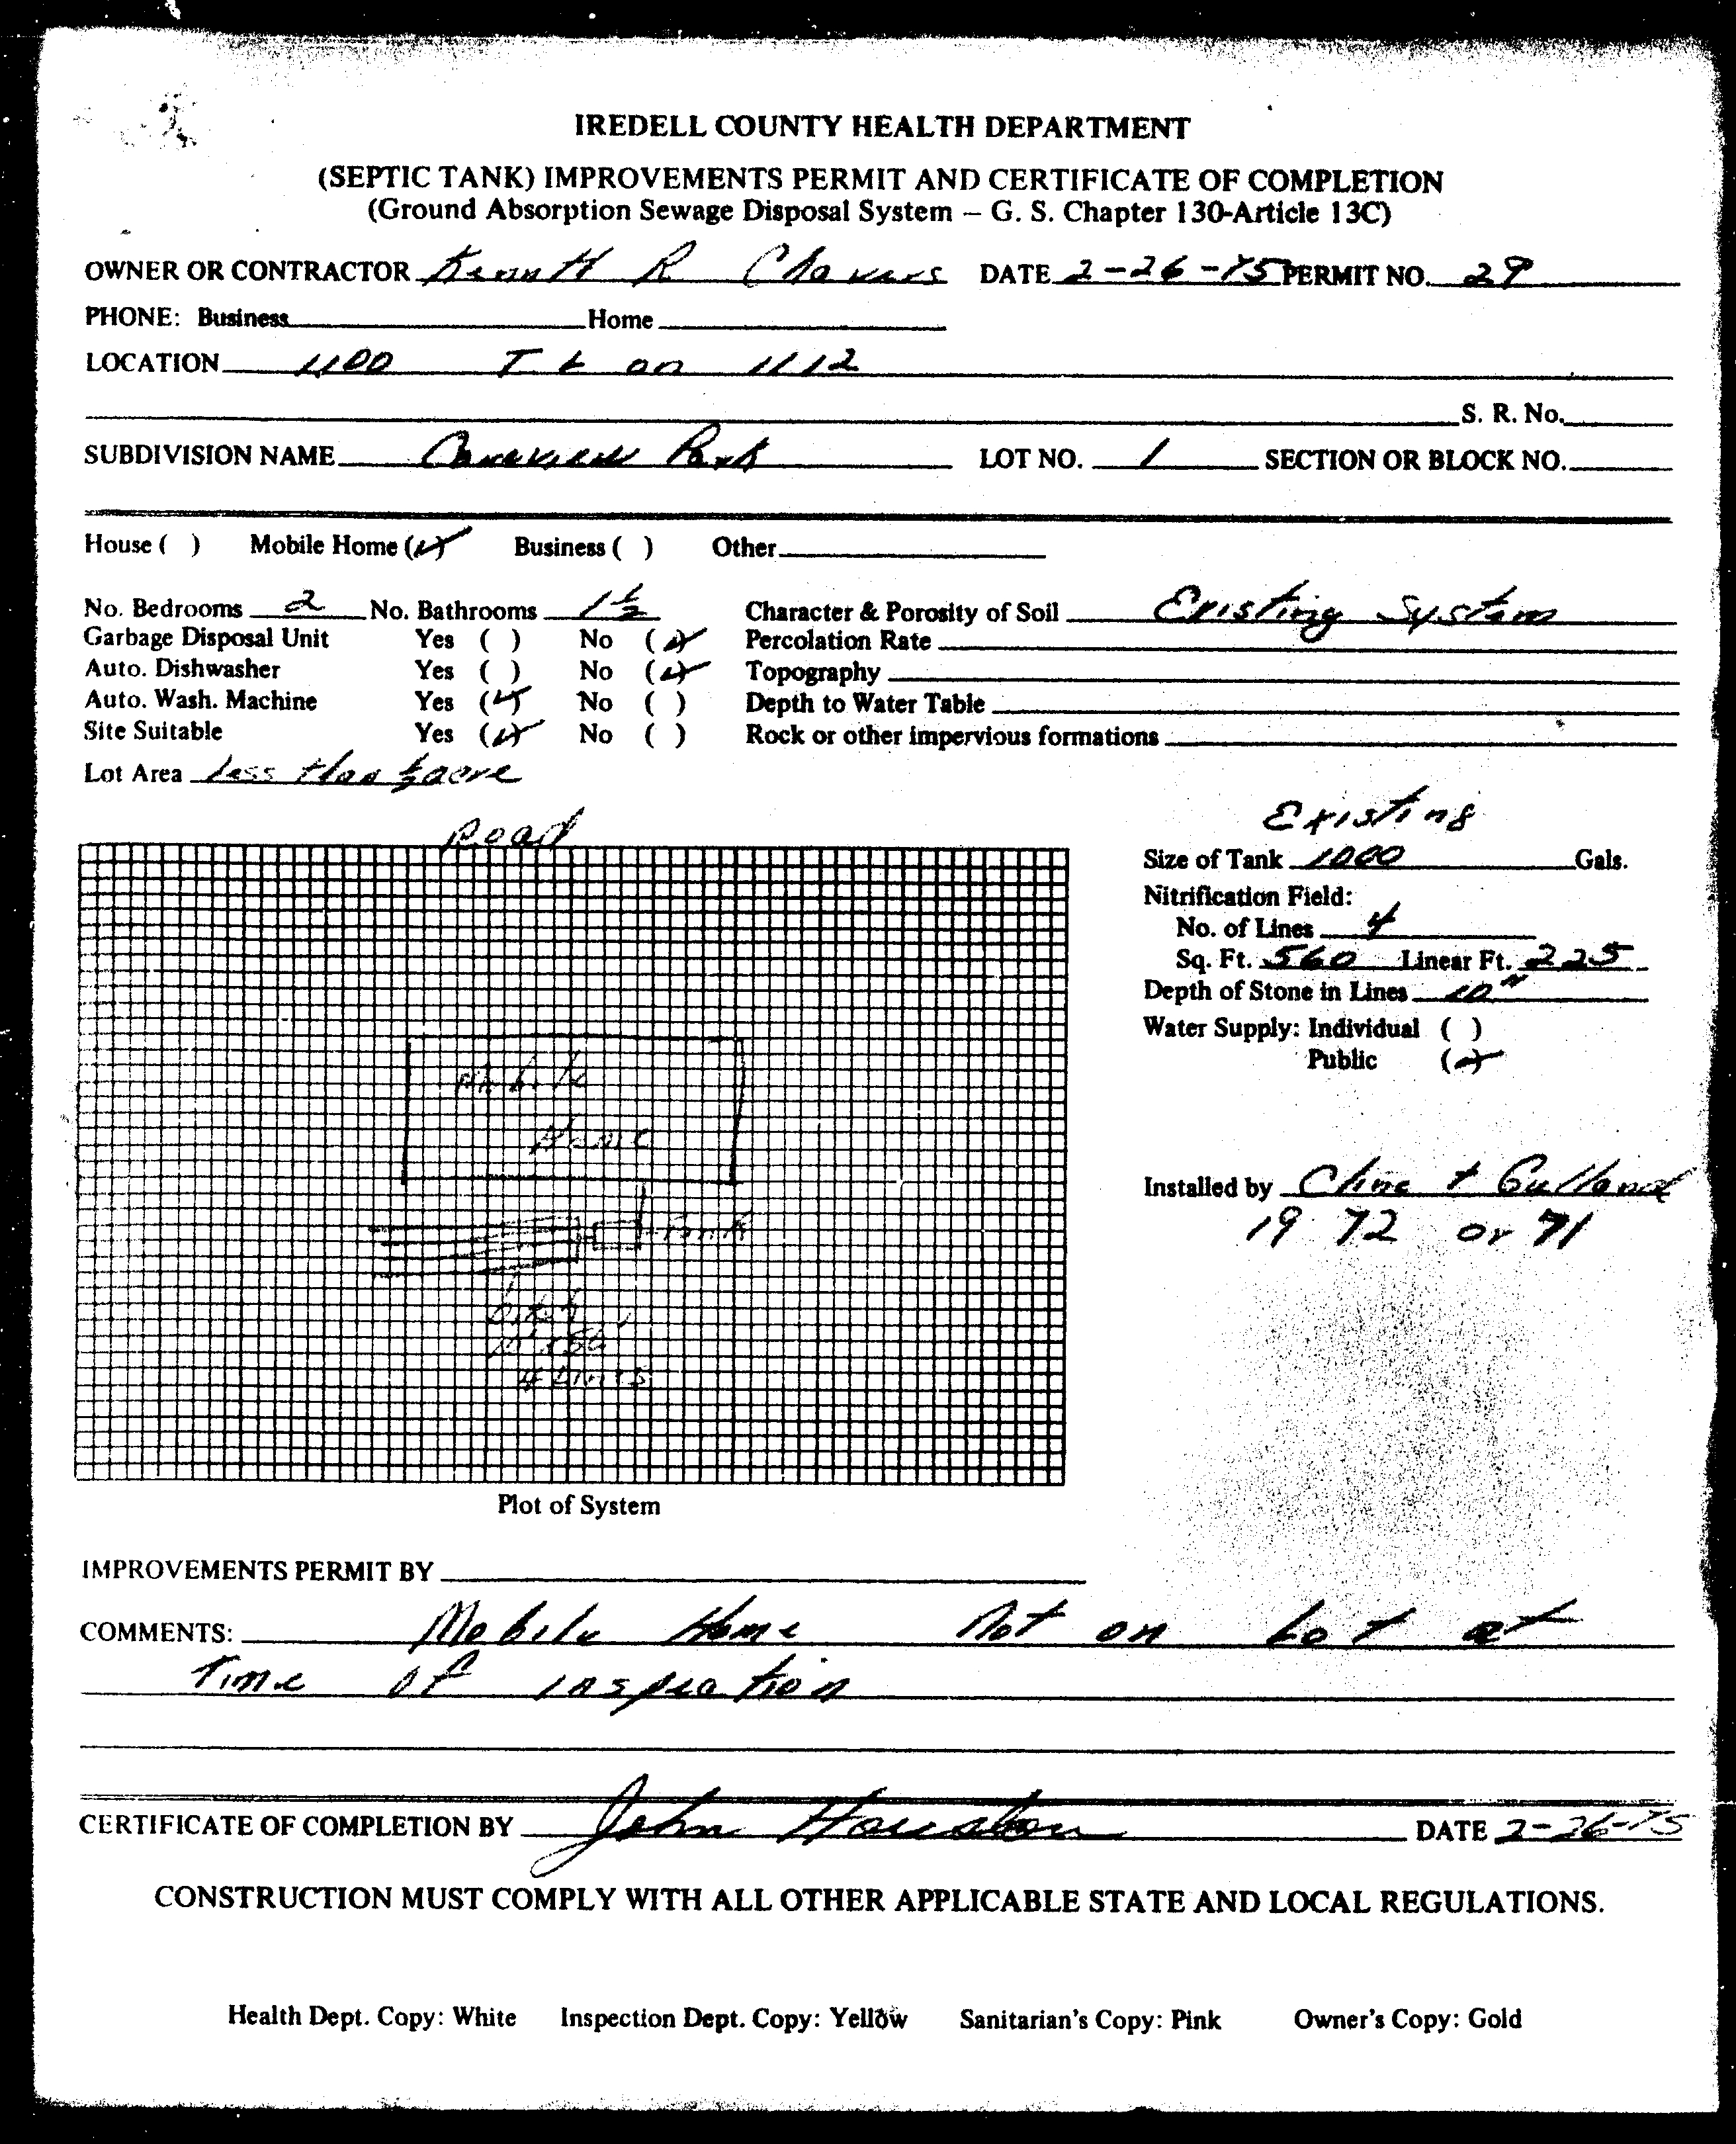 IREDELL COUNTY HEALTH DEPARTMENT
(SEPTIC TANK) IMPROVEMENTS PERMIT AND CERTIFICATE OF COMPLETION
(Ground Absorption Sewage Disposal System – G. S. Chapter 130-Article 13C)
OWNER OR CONTRACTOR R DATE 2-26-75 PERMIT NO. 29
PHONE: Business Home
LOCATION 1100 T L on 1112
S. R. No.
SUBDIVISION NAME Park LOT NO. 1 SECTION OR BLOCK NO.
House ( ) Mobile Home (✓) Business ( ) Other
No. Bedrooms 2 No. Bathrooms 1½ Character & Porosity of Soil Existing System
Garbage Disposal Unit Yes ( ) No (✓) Percolation Rate
Auto. Dishwasher Yes ( ) No (✓) Topography
Auto. Wash. Machine Yes (✓) No ( ) Depth to Water Table
Site Suitable Yes (✓) No ( ) Rock or other impervious formations
Lot Area Less than ½ acre
Road
Existing
Size of Tank 1000 Gals.
Nitrification Field:
No. of Lines 4
Sq. Ft. 560 Linear Ft. 225
Depth of Stone in Lines 10"
Water Supply: Individual ( )
Public (✓)
Mobile
Home
Tank
4 Lines
Installed by Cline +
19 72 or 71
Plot of System
IMPROVEMENTS PERMIT BY
COMMENTS: Mobile Home Not on Lot at
Time of inspection
CERTIFICATE OF COMPLETION BY John Houston DATE 2-26-75
CONSTRUCTION MUST COMPLY WITH ALL OTHER APPLICABLE STATE AND LOCAL REGULATIONS.
Health Dept. Copy: White Inspection Dept. Copy: Yellow Sanitarian's Copy: Pink Owner's Copy: Gold